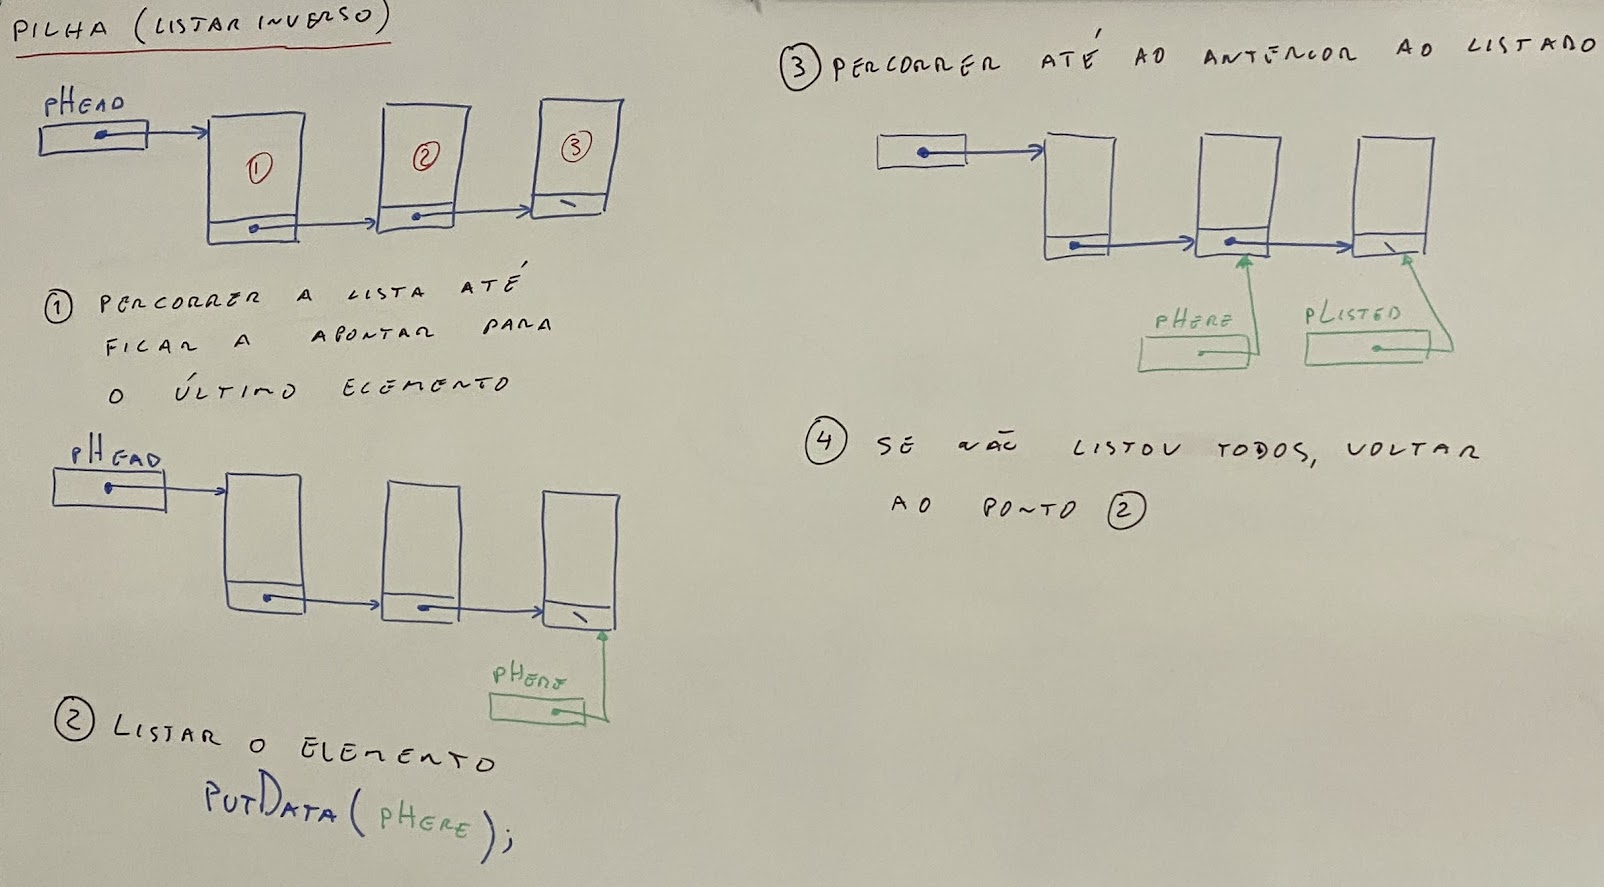 PILHA (LISTAR INVERSO)
pHEAD
1
2
3
① PERCORRER A LISTA ATÉ
FICAR A APONTAR PARA
O ÚLTIMO ELEMENTO
pHEAD
pHERE
② LISTAR O ELEMENTO
PUTDATA(pHERE);
③ PERCORRER ATÉ AO ANTERIOR AO LISTADO
pHERE
pLISTED
④ SE NÃO LISTOU TODOS, VOLTAR
AO PONTO ②